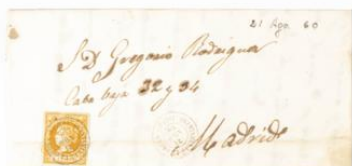 21 Ago. 60
S. D. Gregorio Rodriguez
Caba baja 32 y 34
Madrid